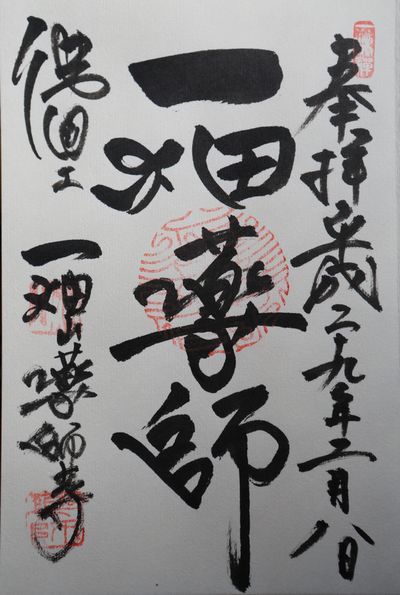 奉拝 平成二十九年二月八日
一畑薬師
一畑山薬師寺